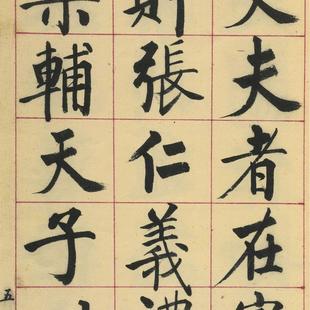 夫者在
則張仁義禮
輔天子
五